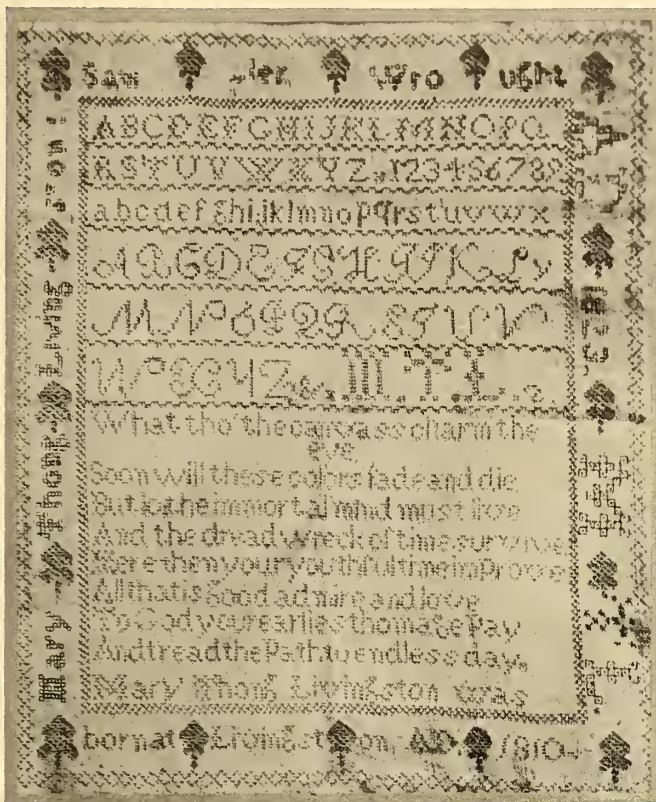 Sam pler Wro ught
ABCDEFGHIJKLMNOPQ
RSTUVWXYZ 123456789
abcdefghijklmnopqrstuvwx
ABCDEFGHIJKL
MNOPQRSTUV
WXYZ
What tho' the canvass charm the
eye
Soon will these colors fade and die
But lo the immortal mind must live
And the dread wreck of time survive
Here then your youthful time improve
All that is good admire and love
To God your earliest homage Pay
And tread the Path to endless day
Mary Thong Livingston was
born at Livingst on A D 1810
Mary Thong Living ston